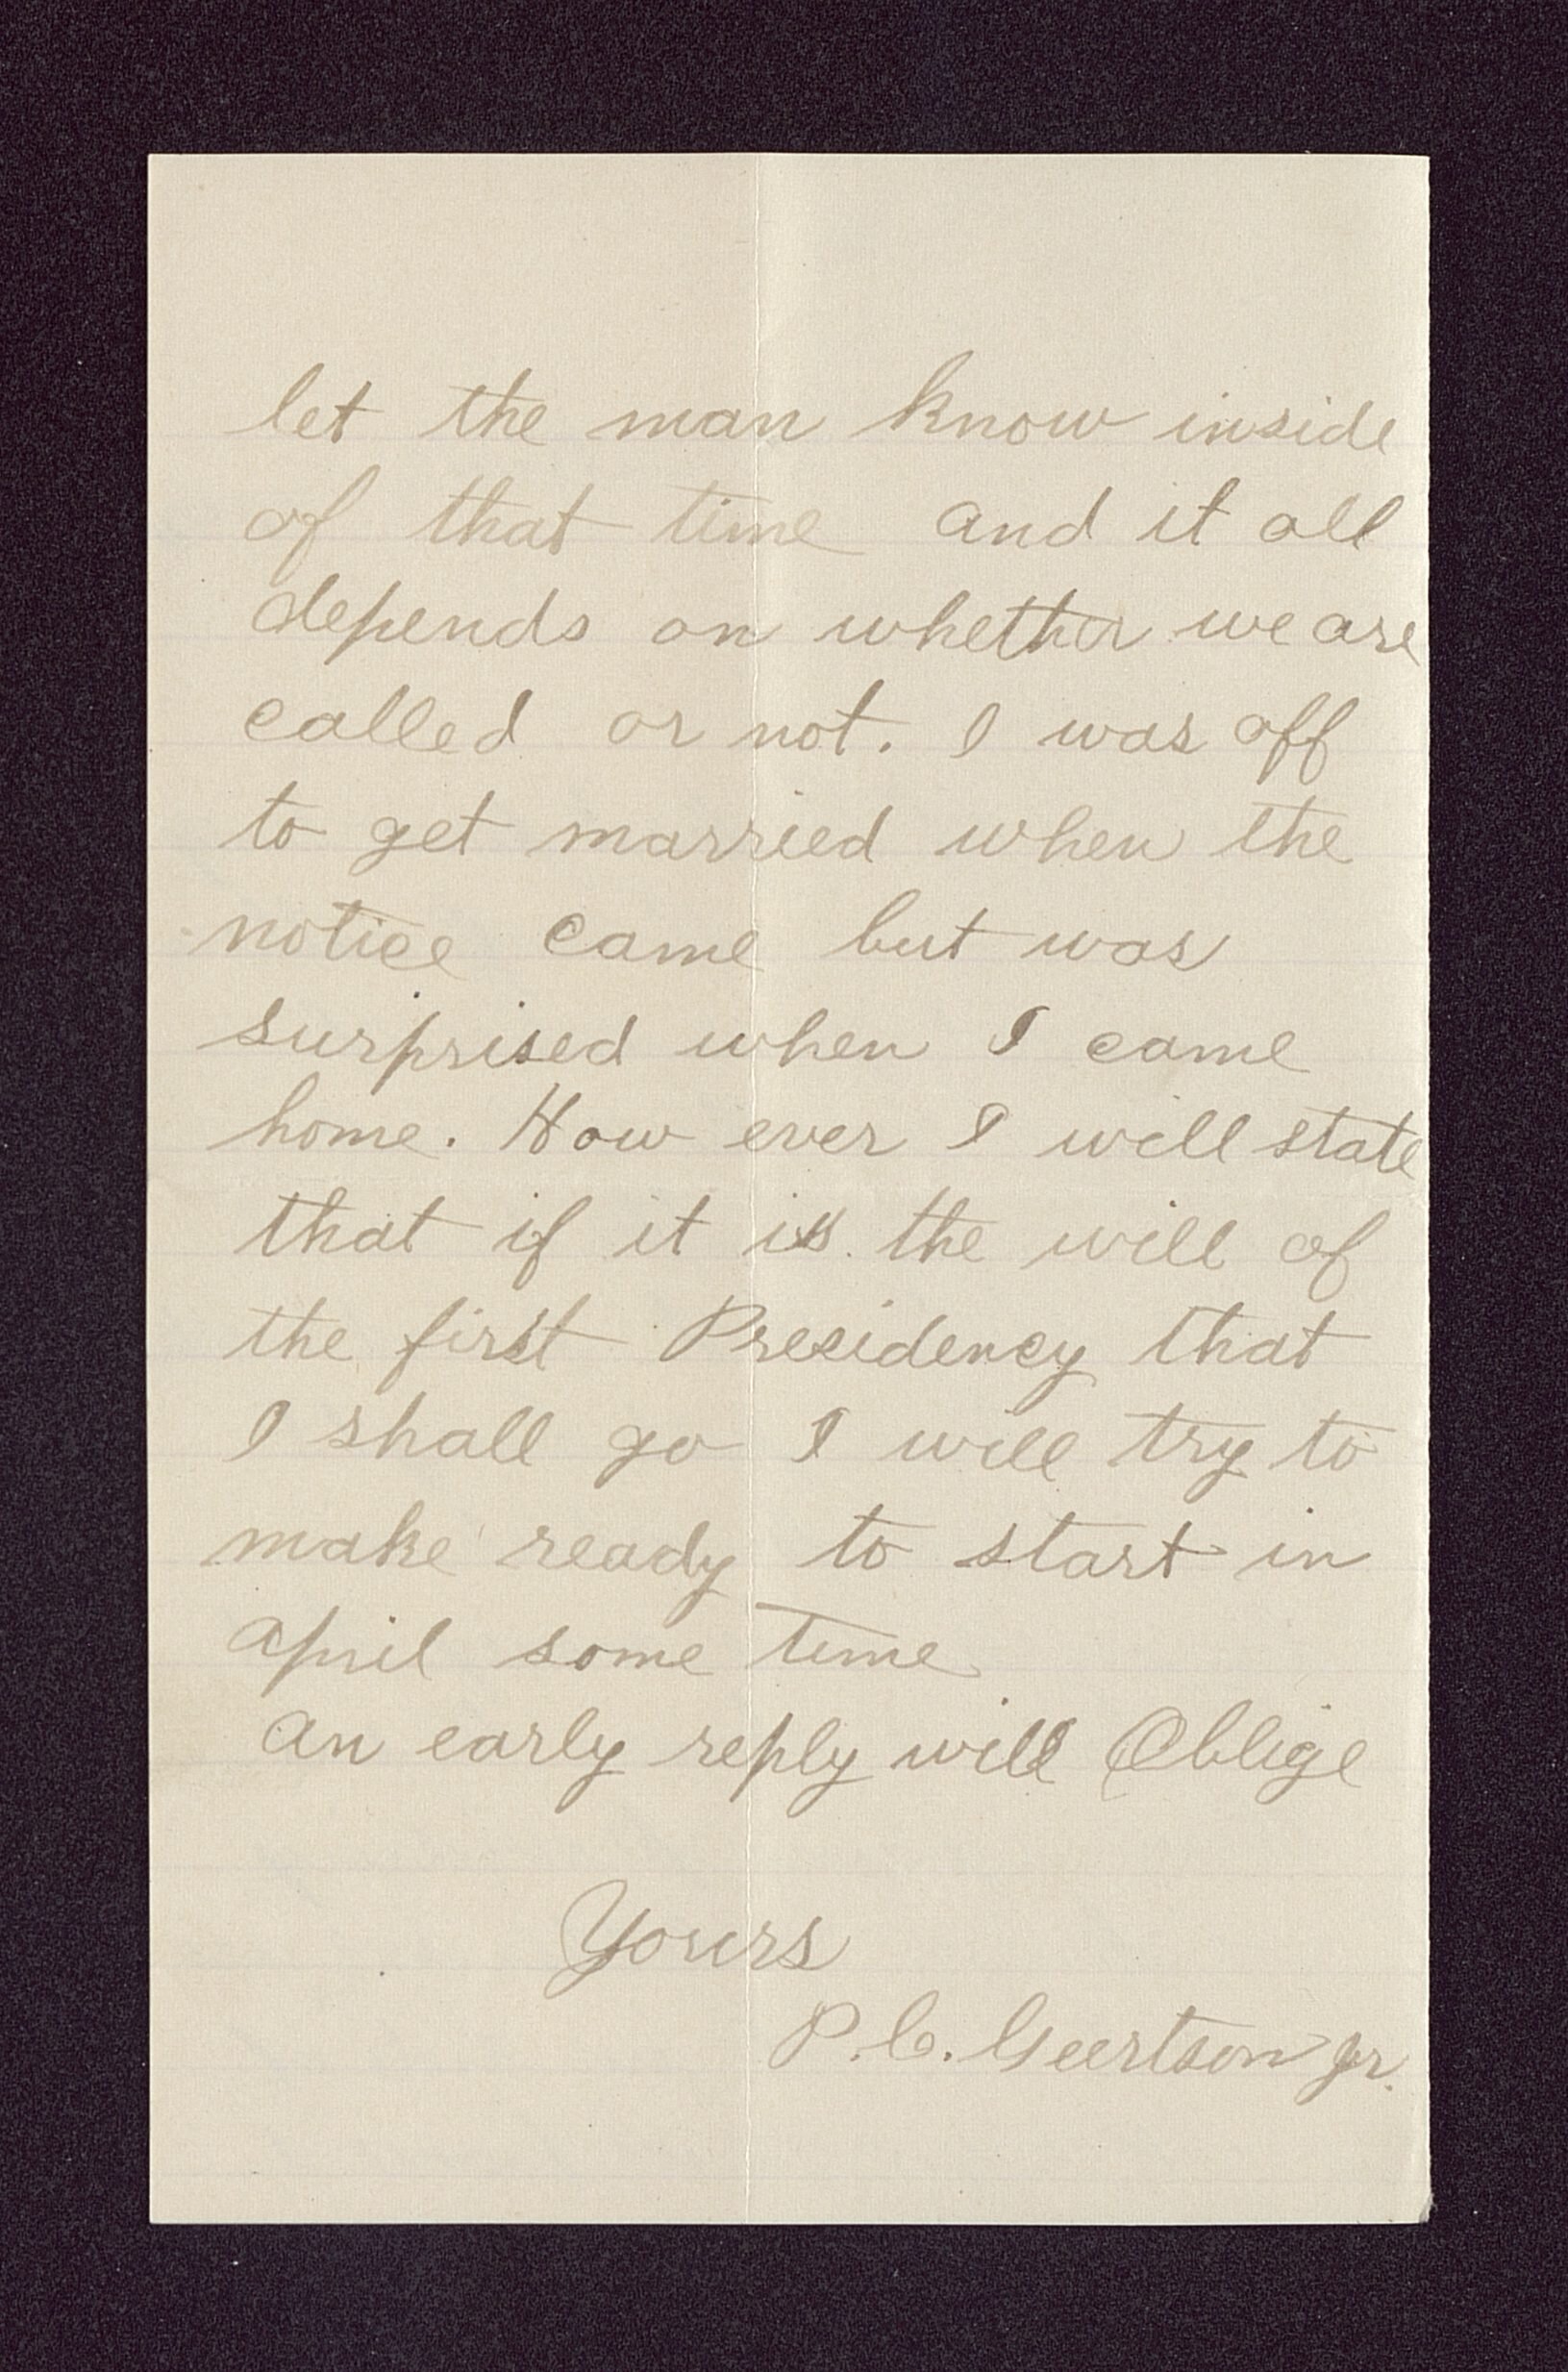 let the man know inside
of that time and it all
depends on whether we are
called or not. I was off
to get married when the
notice came but was
surprised when I came
home. How ever I will state
that if it is the will of
the first Presidency that
I shall go I will try to
make ready to start in
april some time
an early reply will Oblige
Yours
P. C. Geertson jr.